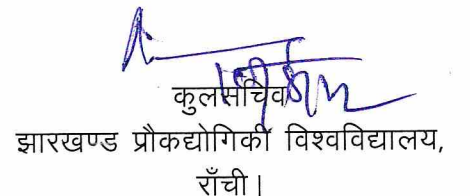 कुलसचिव
झारखण्ड प्रौकद्योगिकी विश्वविद्यालय,
राँची।